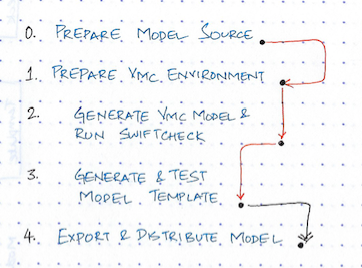 0. PREPARE MODEL SOURCE
1. PREPARE VMC ENVIRONMENT
2. GENERATE VMC MODEL &
RUN SWIFTCHECK
3. GENERATE & TEST
MODEL TEMPLATE
4. EXPORT & DISTRIBUTE MODEL